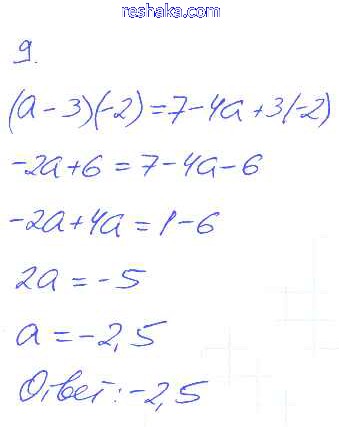 reshaka.com
9.
(a-3)(-2)=7-4a+3(-2)
-2a+6=7-4a-6
-2a+4a=1-6
2a=-5
a=-2,5
Ответ:-2,5